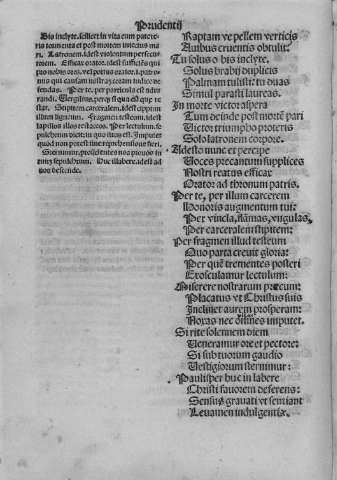 Prudentij
Bis inclyte. scilicet in vita cum patere-
ris tormenta et post mortem inuictus man-
Latronem. idest violentum persecu-
torem. Efficax orator. idest sufficiens qui
pro nobis oras, vel potius orator. i. patro-
nus qui causam nostras coram iudice de-
fendas. Per te. per particula est adiu-
randi. Vergilius. per ego
Stipitem carceralem. idest cippum
illum ligneum. Fragmen testeum. idest
lapillos illos testaceos. Per lectulum. se-
pulchrum dictum quo situs est. Imputet
quod non potest sine reprehensione fieri.
Sternimur. prosternentes nos pronos in
tuum sepulchrum. Huc illabere. idest ad
nos descende.
Raptam ve pellem verticis
Auibus cruentis obtulit:
Tu solus o bis inclyte.
Solus brabij duplicis
Palmam tulisti: tu duas
Simul parasti laureas.
In morte victor aspera
Tum deinde post mortē pari
Victor triumpho proteris
Solo latronem corpore.
Adesto nunc et percipe
Voces precantum supplices
Nostri reatus efficax
Orator ad thronum patris.
Per te, per illum carcerem
Honoris augmentum tui:
Per vincla, flāmas, vngulas
Per carceralem stipitem:
Per fragmen illud testeum
Quo parta creuit gloria:
Per quē trementes posteri
Exosculamur lectulum:
Miserere nostrarum precum:
Placatus vt Christus suis
Inclinet aurem prosperam:
Noxas nec omnes imputet.
Si rite solennem diem
Veneramur ore et pectore:
Si sub tuorum gaudio
Vestigiorum sternimur:
Paulisper huc inlabere
Christi fauorem deferens:
Sensus grauati vt sentiant
Leuamen indulgentiæ.